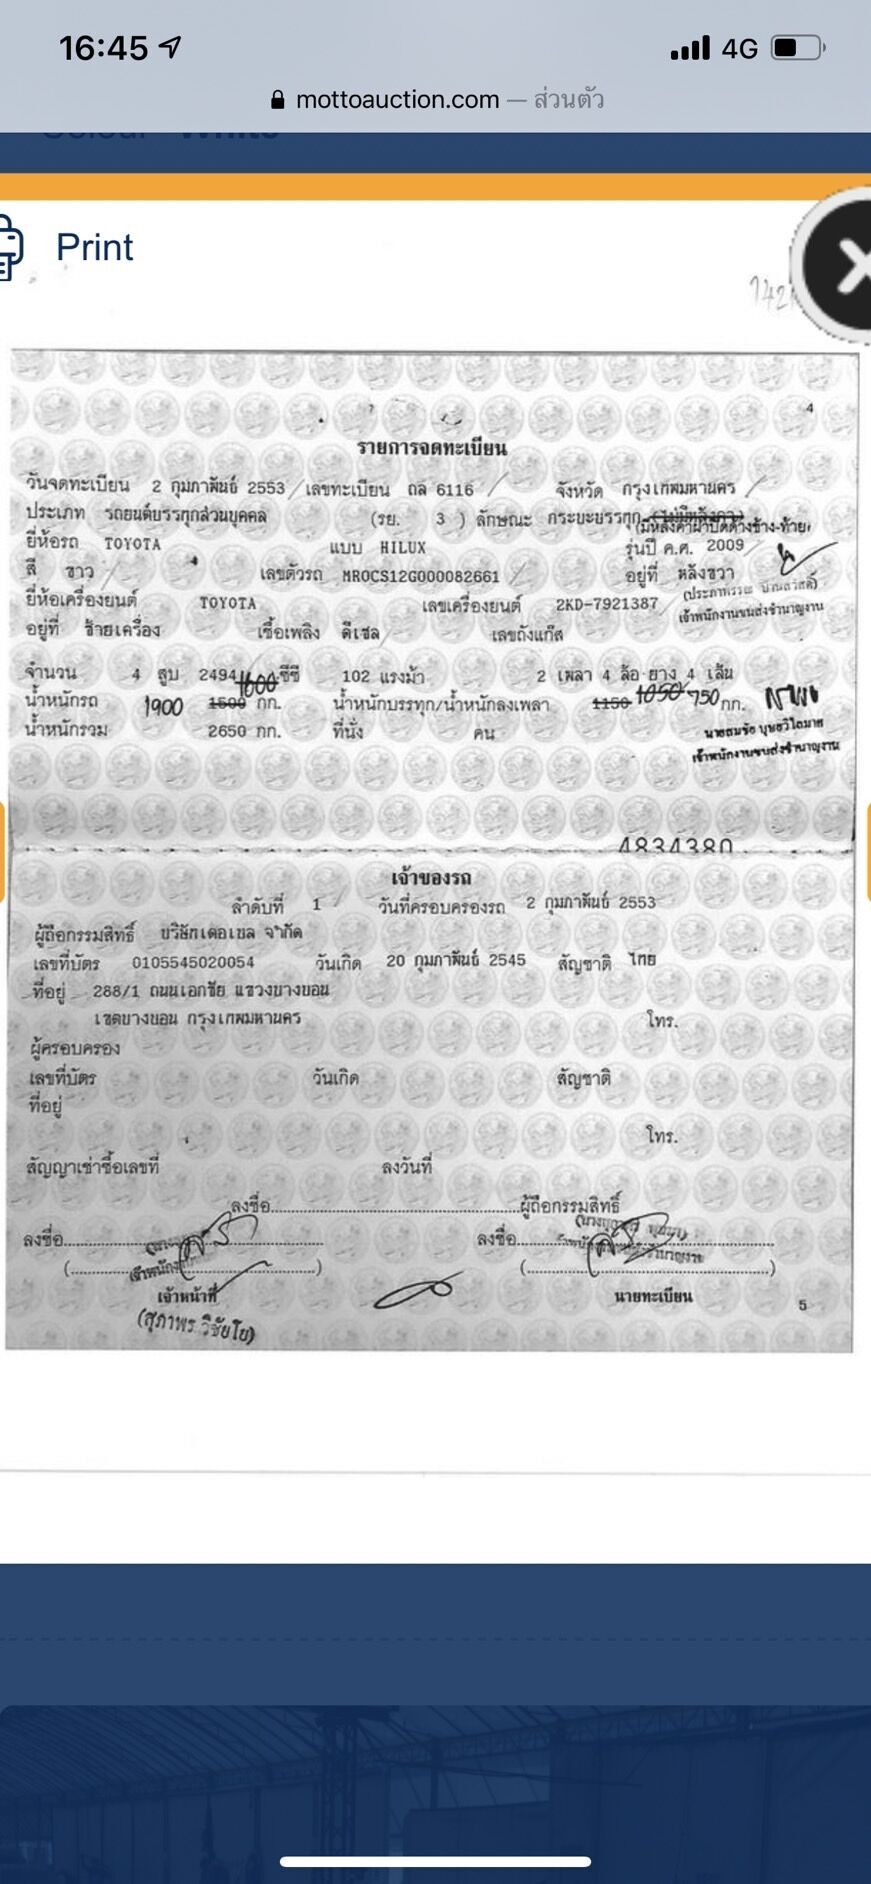 16:45
4G
mottoauction.com — ส่วนตัว
Colour White
Print
4
รายการจดทะเบียน
วันจดทะเบียน 2 กุมภาพันธ์ 2553 เลขทะเบียน ถล 6116 จังหวัด กรุงเทพมหานคร
ประเภท รถยนต์บรรทุกส่วนบุคคล (รย. 3 ) ลักษณะ กระบะบรรทุก (ไม่มีหลังคา)
(มีหลังคาฝาปิดด้านข้าง-ท้าย)
ยี่ห้อรถ TOYOTA แบบ HILUX รุ่นปี ค.ศ. 2009
สี ขาว เลขตัวรถ MROCS12G000082661 อยู่ที่ หลังขวา
ยี่ห้อเครื่องยนต์ TOYOTA เลขเครื่องยนต์ 2KD-7921387
เจ้าพนักงานขนส่งชำนาญงาน
อยู่ที่ ซ้ายเครื่อง เชื้อเพลิง ดีเซล เลขถังแก๊ส
จำนวน 4 สูบ 2494 ซีซี 102 แรงม้า 2 เพลา 4 ล้อ ยาง 4 เส้น
น้ำหนักรถ 1900 1500 1600 กก. น้ำหนักบรรทุก/น้ำหนักลงเพลา 1150 1050 750 กก.
น้ำหนักรวม 2650 กก. ที่นั่ง คน
เจ้าพนักงานขนส่งชำนาญงาน
4834380
เจ้าของรถ
ลำดับที่ 1 วันที่ครอบครองรถ 2 กุมภาพันธ์ 2553
ผู้ถือกรรมสิทธิ์ บริษัทเดอเบล จำกัด
เลขที่บัตร 0105545020054 วันเกิด 20 กุมภาพันธ์ 2545 สัญชาติ ไทย
ที่อยู่ 288/1 ถนนเอกชัย แขวงบางบอน
เขตบางบอน กรุงเทพมหานคร โทร.
ผู้ครอบครอง
เลขที่บัตร วันเกิด สัญชาติ
ที่อยู่
โทร.
สัญญาเช่าซื้อเลขที่ ลงวันที่
ลงชื่อ ผู้ถือกรรมสิทธิ์
ลงชื่อ ลงชื่อ
( ) ( )
เจ้าหน้าที่ นายทะเบียน
5
(สุภาพร วิชัยโย)